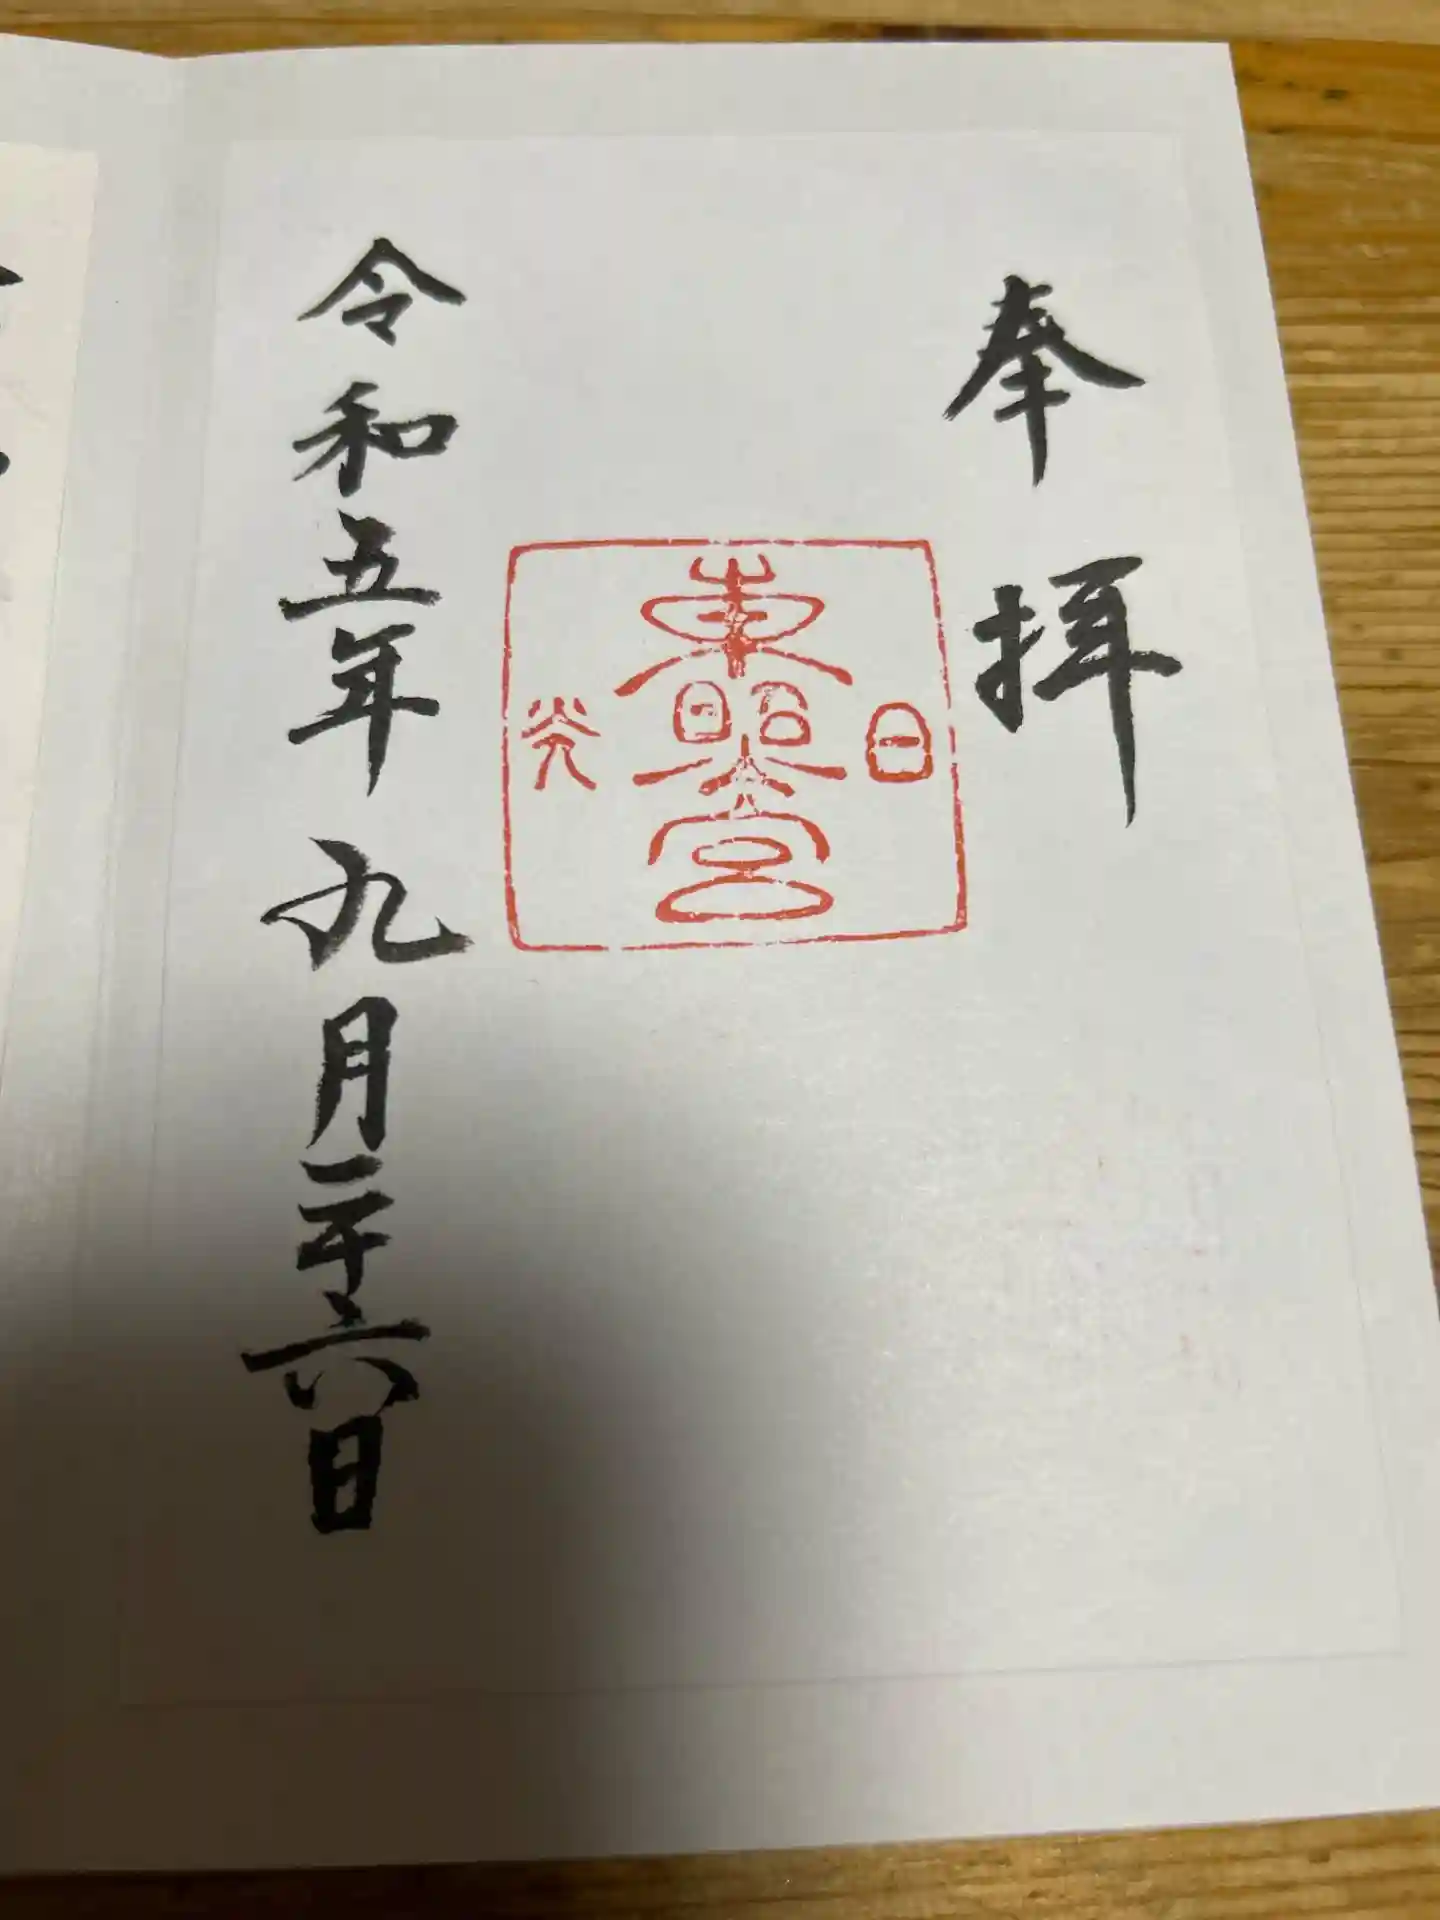 奉拝
日光
東照宮
令和五年九月二十六日